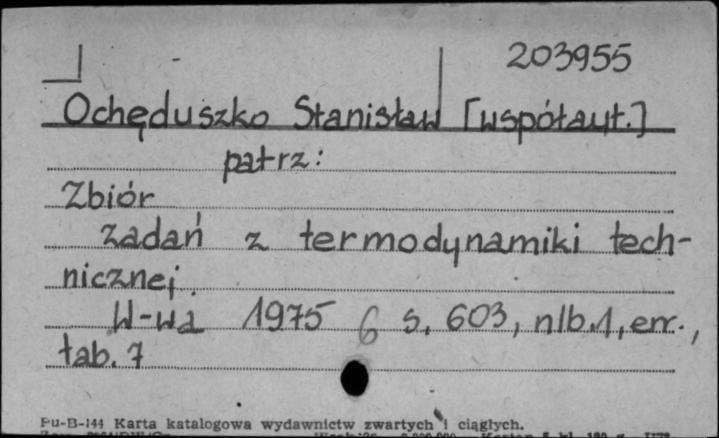 203955
Ochęduszko Stanisław [współaut.]
patrz:
Zbiór
zadań z termodynamiki tech-
nicznej.
W-wa 1975 6 s. 603, nlb.1, err.,
tab. 7
Pu-B-144 Karta katalogowa wydawnictw zwartych i ciągłych.